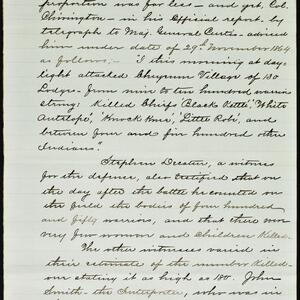 proportion was far less — and yet, Col.
Chivington — in his Official report, by
telegraph to Maj. General Curtis — advised
him under date of 29th November 1864
as follows: — "I this morning at day-
light attacked Cheyenne Village of 130
Lodges — from nine to ten hundred warriors
strong: Killed Chiefs "Black Kettle", "White
Antelope", "Knock Knee", "Little Robe", and
between four and five hundred other
Indians."
Stephen Decatur, a witness
for the defense, also testified that on
the day after the battle he counted on
the field the bodies of four hundred
and fifty warriors, and that there were
very few women and Children Killed.
The other witnesses varied in
their estimate of the number Killed —
one stating it as high as 180. John
Smith the Interpreter, who was in